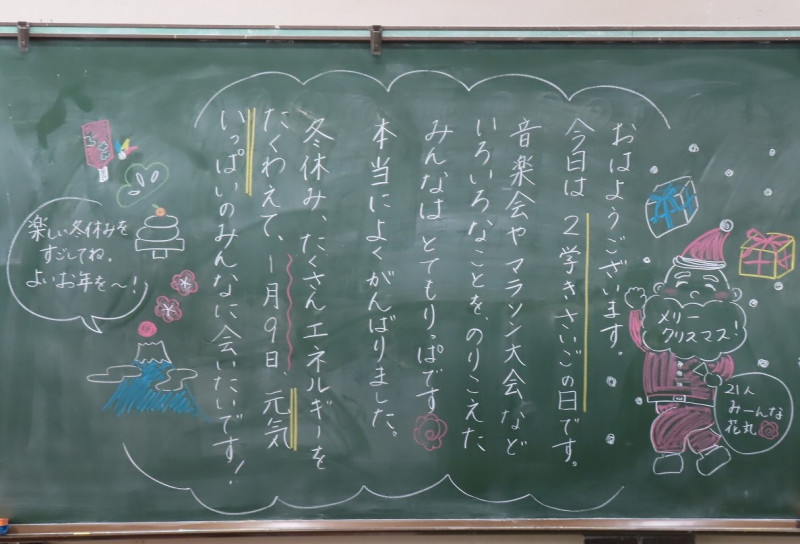 おはようございます。
今日は２学きさいごの日です。
音楽会やマラソン大会など
いろいろなことを、のりこえた
みんなは とてもりっぱです
本当によくがんばりました。
冬休み、たくさんエネルギーを
たくわえて、１月９日、元気
いっぱいのみんなに会いたいです！
メリー
クリスマス！
21人
みーんな
花丸
楽しい冬休みを
すごしてね。
よいお年を～！